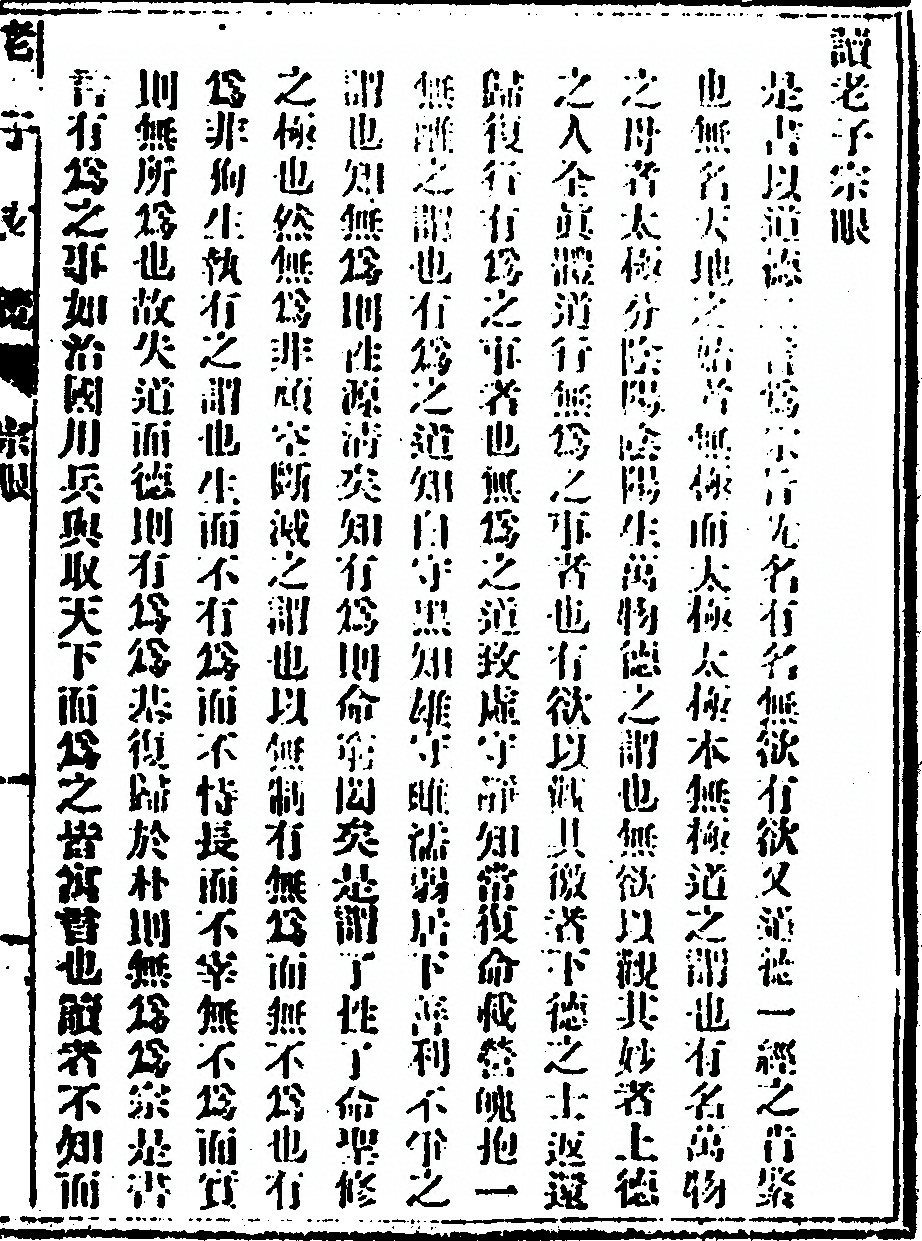 讀老子宗眼
是書以道德二言爲宗旨無名有名無欲有欲又道德一經之肯綮
也無名天地之始者無極而太極太極本無極道之謂也有名萬物
之母者太極分陰陽陰陽生萬物德之謂也無欲以觀其妙者上德
之人全眞體道行無爲之事者也有欲以觀其徼者下德之士返還
歸復行有爲之事者也無爲之道致虛守靜知常復命載營魄抱一
無離之謂也有爲之道知白守黑知雄守雌濡弱居下善利不爭之
謂也知無爲則性源清矣知有爲則命寶固矣是謂了性了命聖修
之極也然無爲非頑空斷滅之謂也以無制有無爲而無不爲也有
爲非徇生執有之謂也生而不有爲而不恃長而不宰無不爲而實
則無所爲也故失道而德則有爲爲基復歸於朴則無爲爲宗是書
言有爲之事如治國用兵與取天下而爲之皆寓言也讀者不知而
老子
宗眼